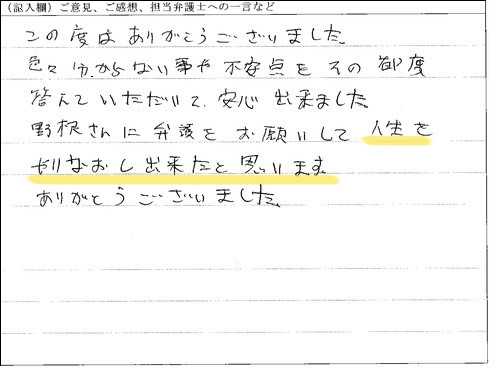 （記入欄）ご意見、ご感想、担当弁護士への一言など
この度はありがとうございました。
色々分からない事や不安点をその都度
答えていただいて、安心出来ました。
野根さんに弁護をお願いして人生を
やりなおし出来たと思います。
ありがとうございました。